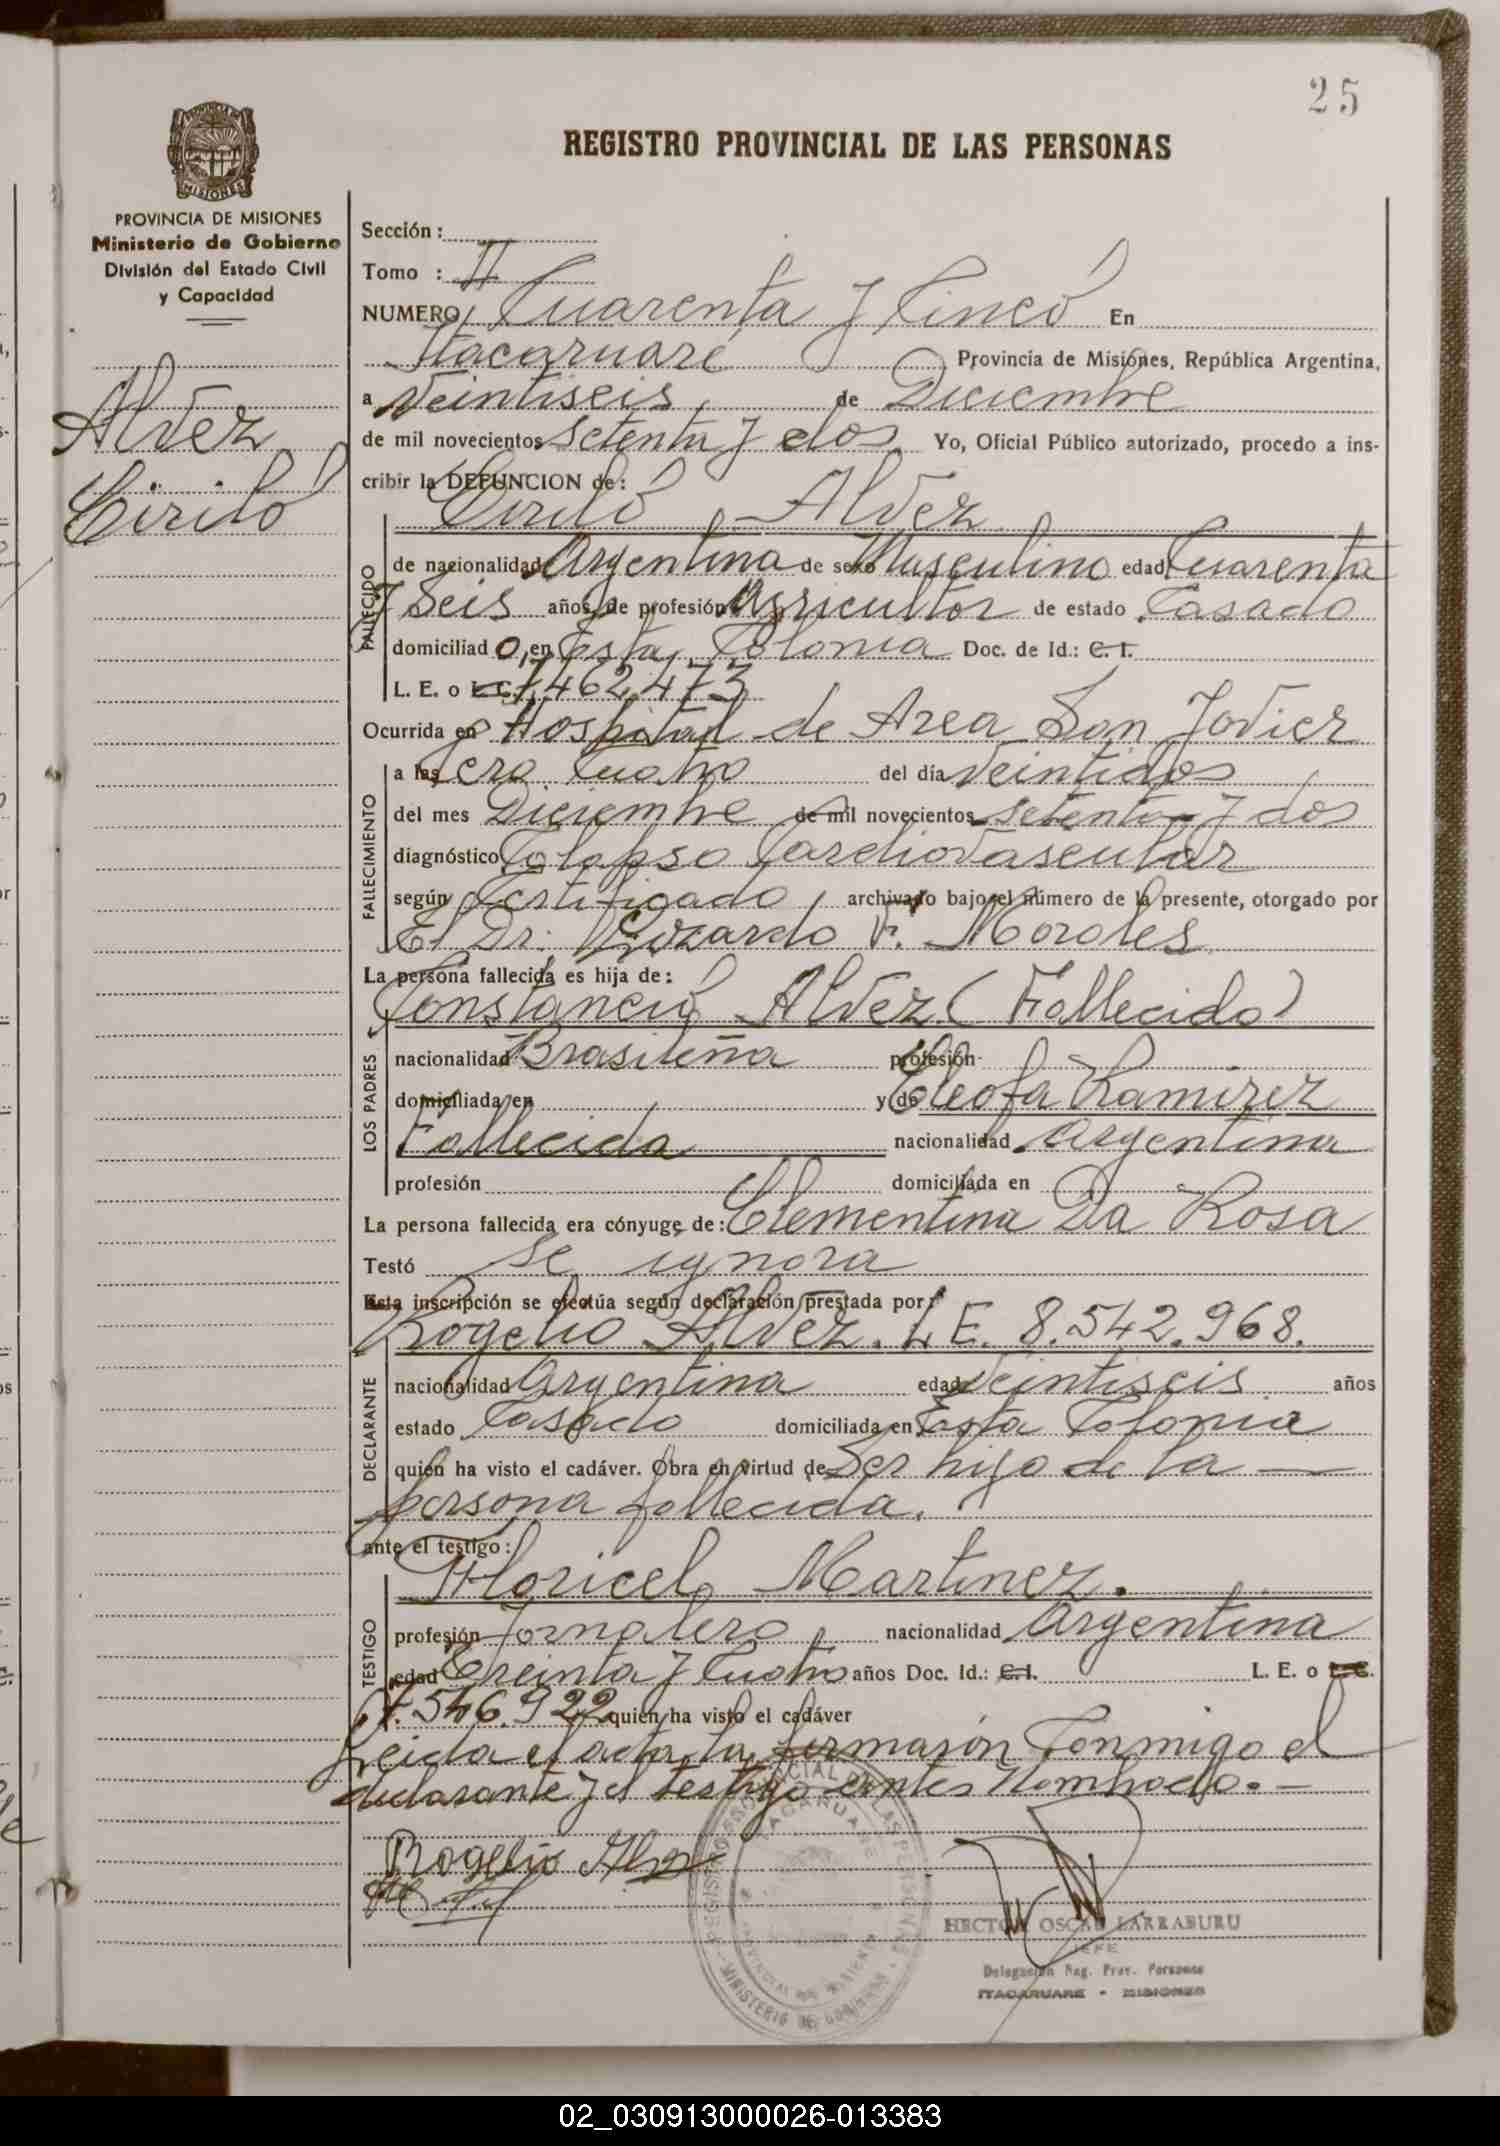 25
REGISTRO PROVINCIAL DE LAS PERSONAS
PROVINCIA DE MISIONES
Ministerio de Gobierno
División del Estado Civil
y Capacidad
Alvez
Cirilo
Sección:
Tomo : II
NUMERO Cuarenta y Cinco En
Itacaruaré Provincia de Misiones, República Argentina,
a Veintiseis de Diciembre
de mil novecientos setenta y dos Yo, Oficial Público autorizado, procedo a ins-
cribir la DEFUNCION de:
Cirilo Alvez
FALLECIDO
de nacionalidad Argentina de sexo Masculino edad Cuarenta
y Seis años, de profesión Agricultor de estado Casado
domiciliad o, en Esta Colonia Doc. de Id.: C. I.
L. E. o L. C. 7.462.473
Ocurrida en Hospital de Area San Javier
FALLECIMIENTO
a las Cero Cuatro del día Veintidos
del mes Diciembre de mil novecientos setenta y dos
diagnóstico Colapso Cardiovascular
según Certificado archivado bajo el número de la presente, otorgado por
El Dr. F. Morales
La persona fallecida es hija de:
Constancio Alvez (Fallecido)
LOS PADRES
nacionalidad Brasileña profesión
domiciliada en y de Cleofa Ramirez
Fallecida nacionalidad Argentina
profesión domiciliada en
La persona fallecida era cónyuge de: Clementina Da Rosa
Testó se ignora
Esta inscripción se efectúa según declaración prestada por:
Rogelio Alvez. L E. 8.542.968.
DECLARANTE
nacionalidad Argentina edad Veintiseis años
estado Casado domiciliada en Esta Colonia
quien ha visto el cadáver. Obra en virtud de Ser hijo de la —
persona fallecida.
ante el testigo:
Floricel Martinez.
TESTIGO
profesión Jornalero nacionalidad Argentina
edad Treinta y Cuatro años Doc. Id.: C. I. L. E. o L. C.
7.546.922 quien ha visto el cadáver
Leida el acta, la firmarón Conmigo el
declarante y el testigo antes Nombrado. —
Rogelio Alvez
REGISTRO PROVINCIAL DE LAS PERSONAS
ITACARUARE
PROVINCIA DE MISIONES
MINISTERIO DE GOBIERNO
HECTOR OSCAR LARRABURU
JEFE
Delegación Reg. Prov. Personas
ITACARUARE - MISIONES
02_030913000026-013383